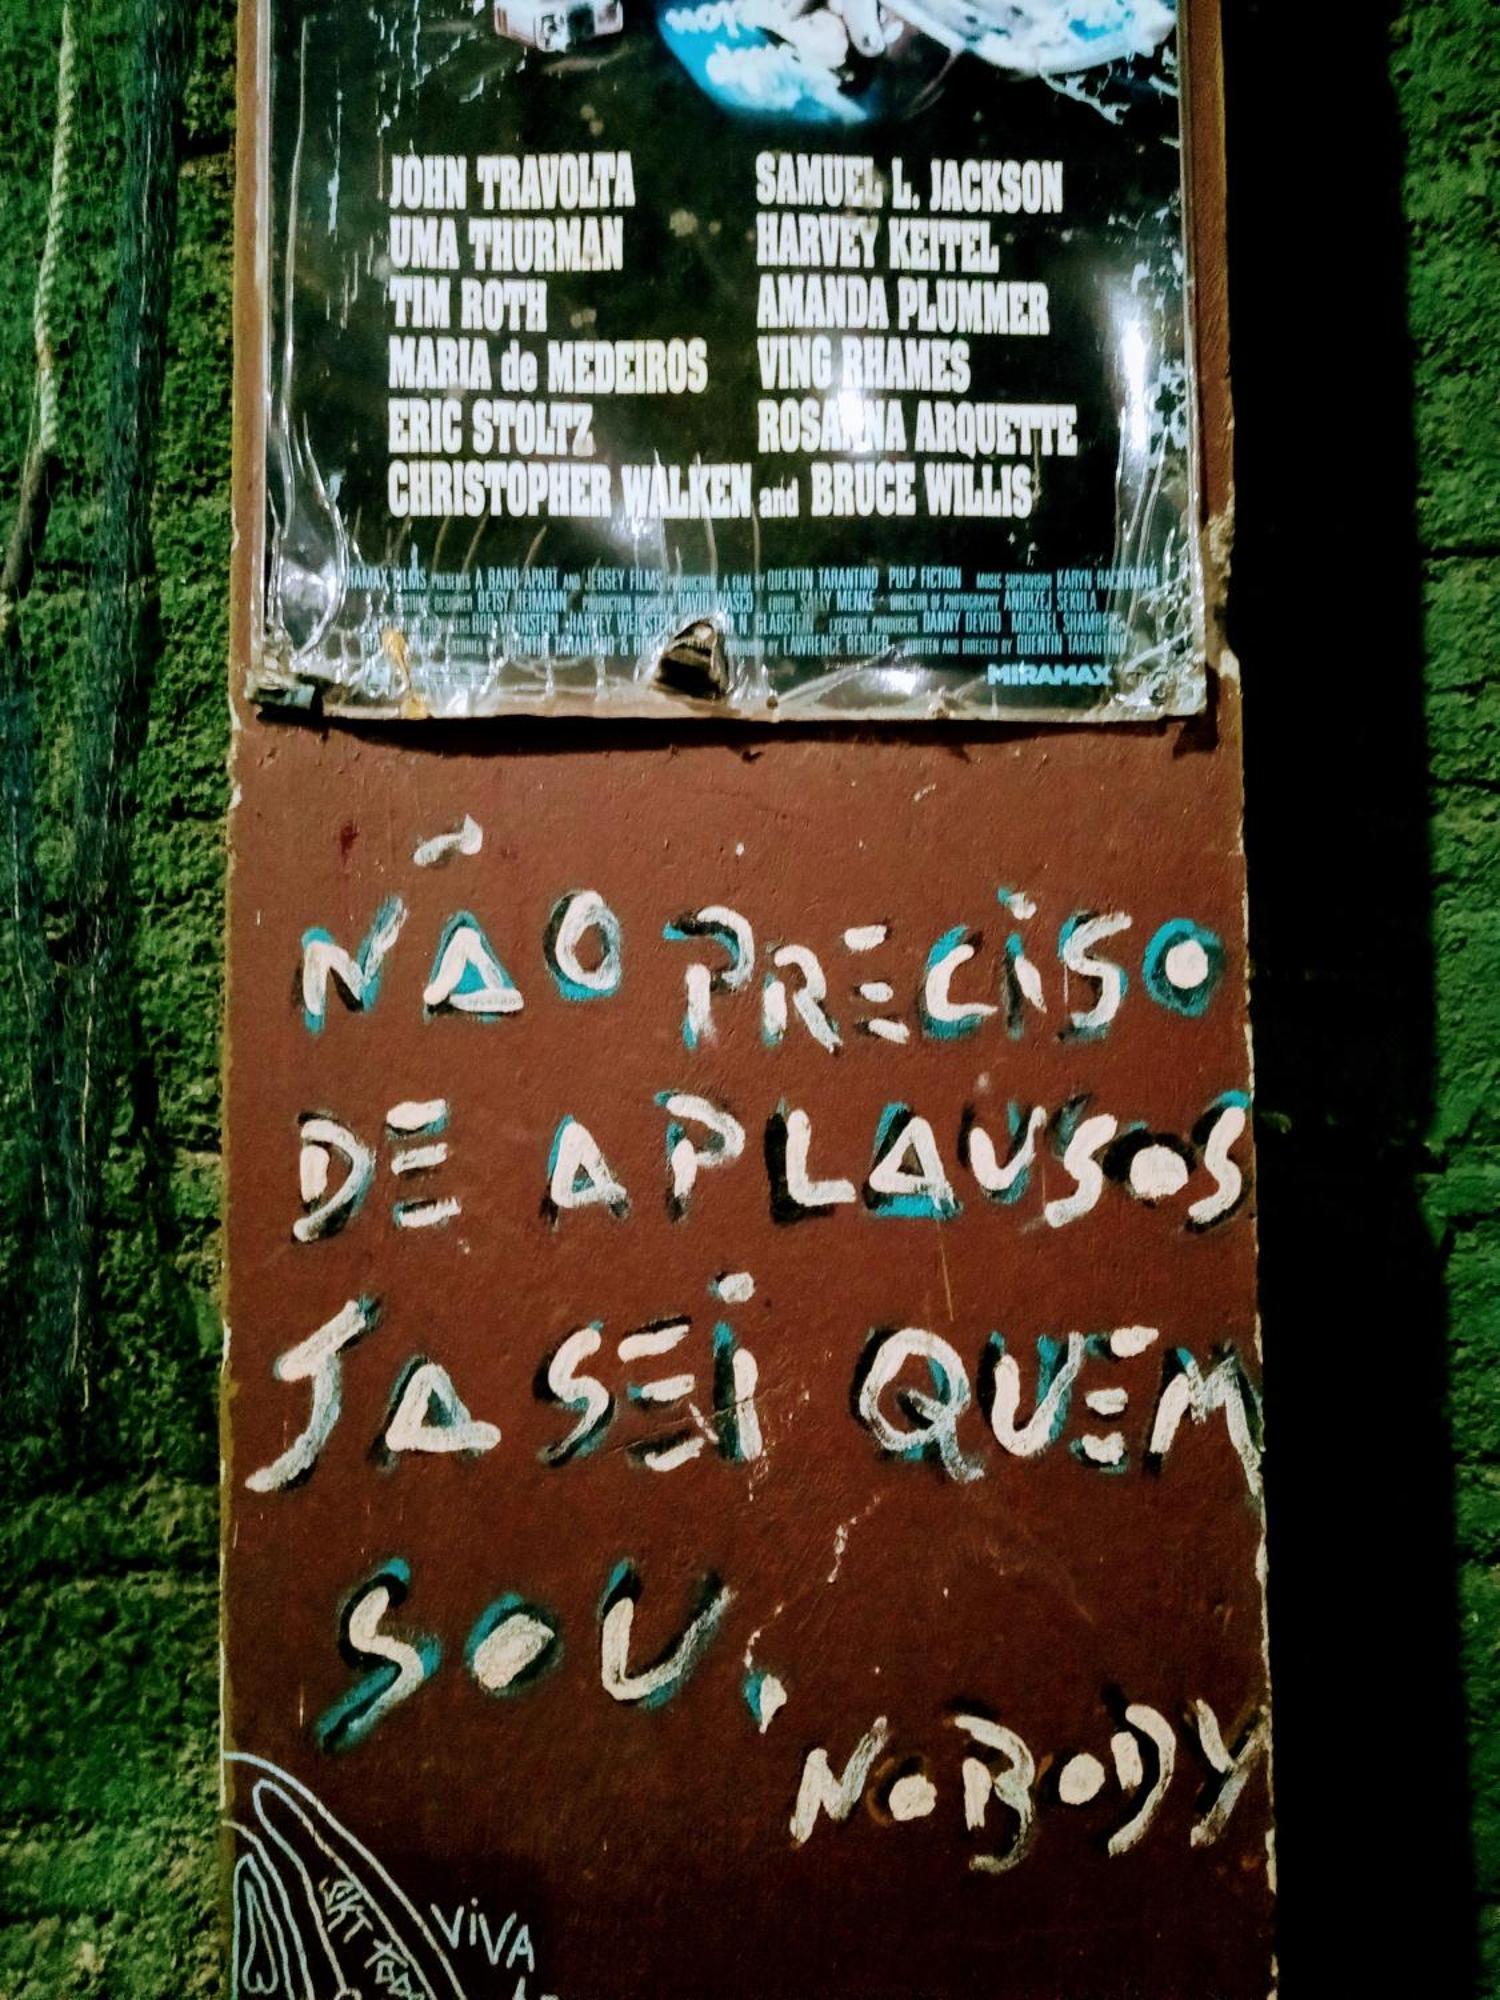 JOHN TRAVOLTA SAMUEL L. JACKSON
UMA THURMAN HARVEY KEITEL
TIM ROTH AMANDA PLUMMER
MARIA de MEDEIROS VING RHAMES
ERIC STOLTZ ROSANNA ARQUETTE
CHRISTOPHER WALKEN and BRUCE WILLIS
FILMS PRESENTS A BAND APART AND JERSEY FILMS PRODUCTION A FILM BY QUENTIN TARANTINO PULP FICTION MUSIC SUPERVISOR KARYN RACHTMAN
DESIGNER BETSY HEIMANN PRODUCTION DAVID WASCO EDITOR SALLY MENKE DIRECTOR OF PHOTOGRAPHY ANDRZEJ SEKULA
HARVEY EXECUTIVE PRODUCERS DANNY DEVITO MICHAEL
BY LAWRENCE BENDER WRITTEN AND DIRECTED BY QUENTIN
MIRAMAX
NÃO PRECISO
DE APLAUSOS
JA SEI QUEM
SOU.
NOBODY
VIVA